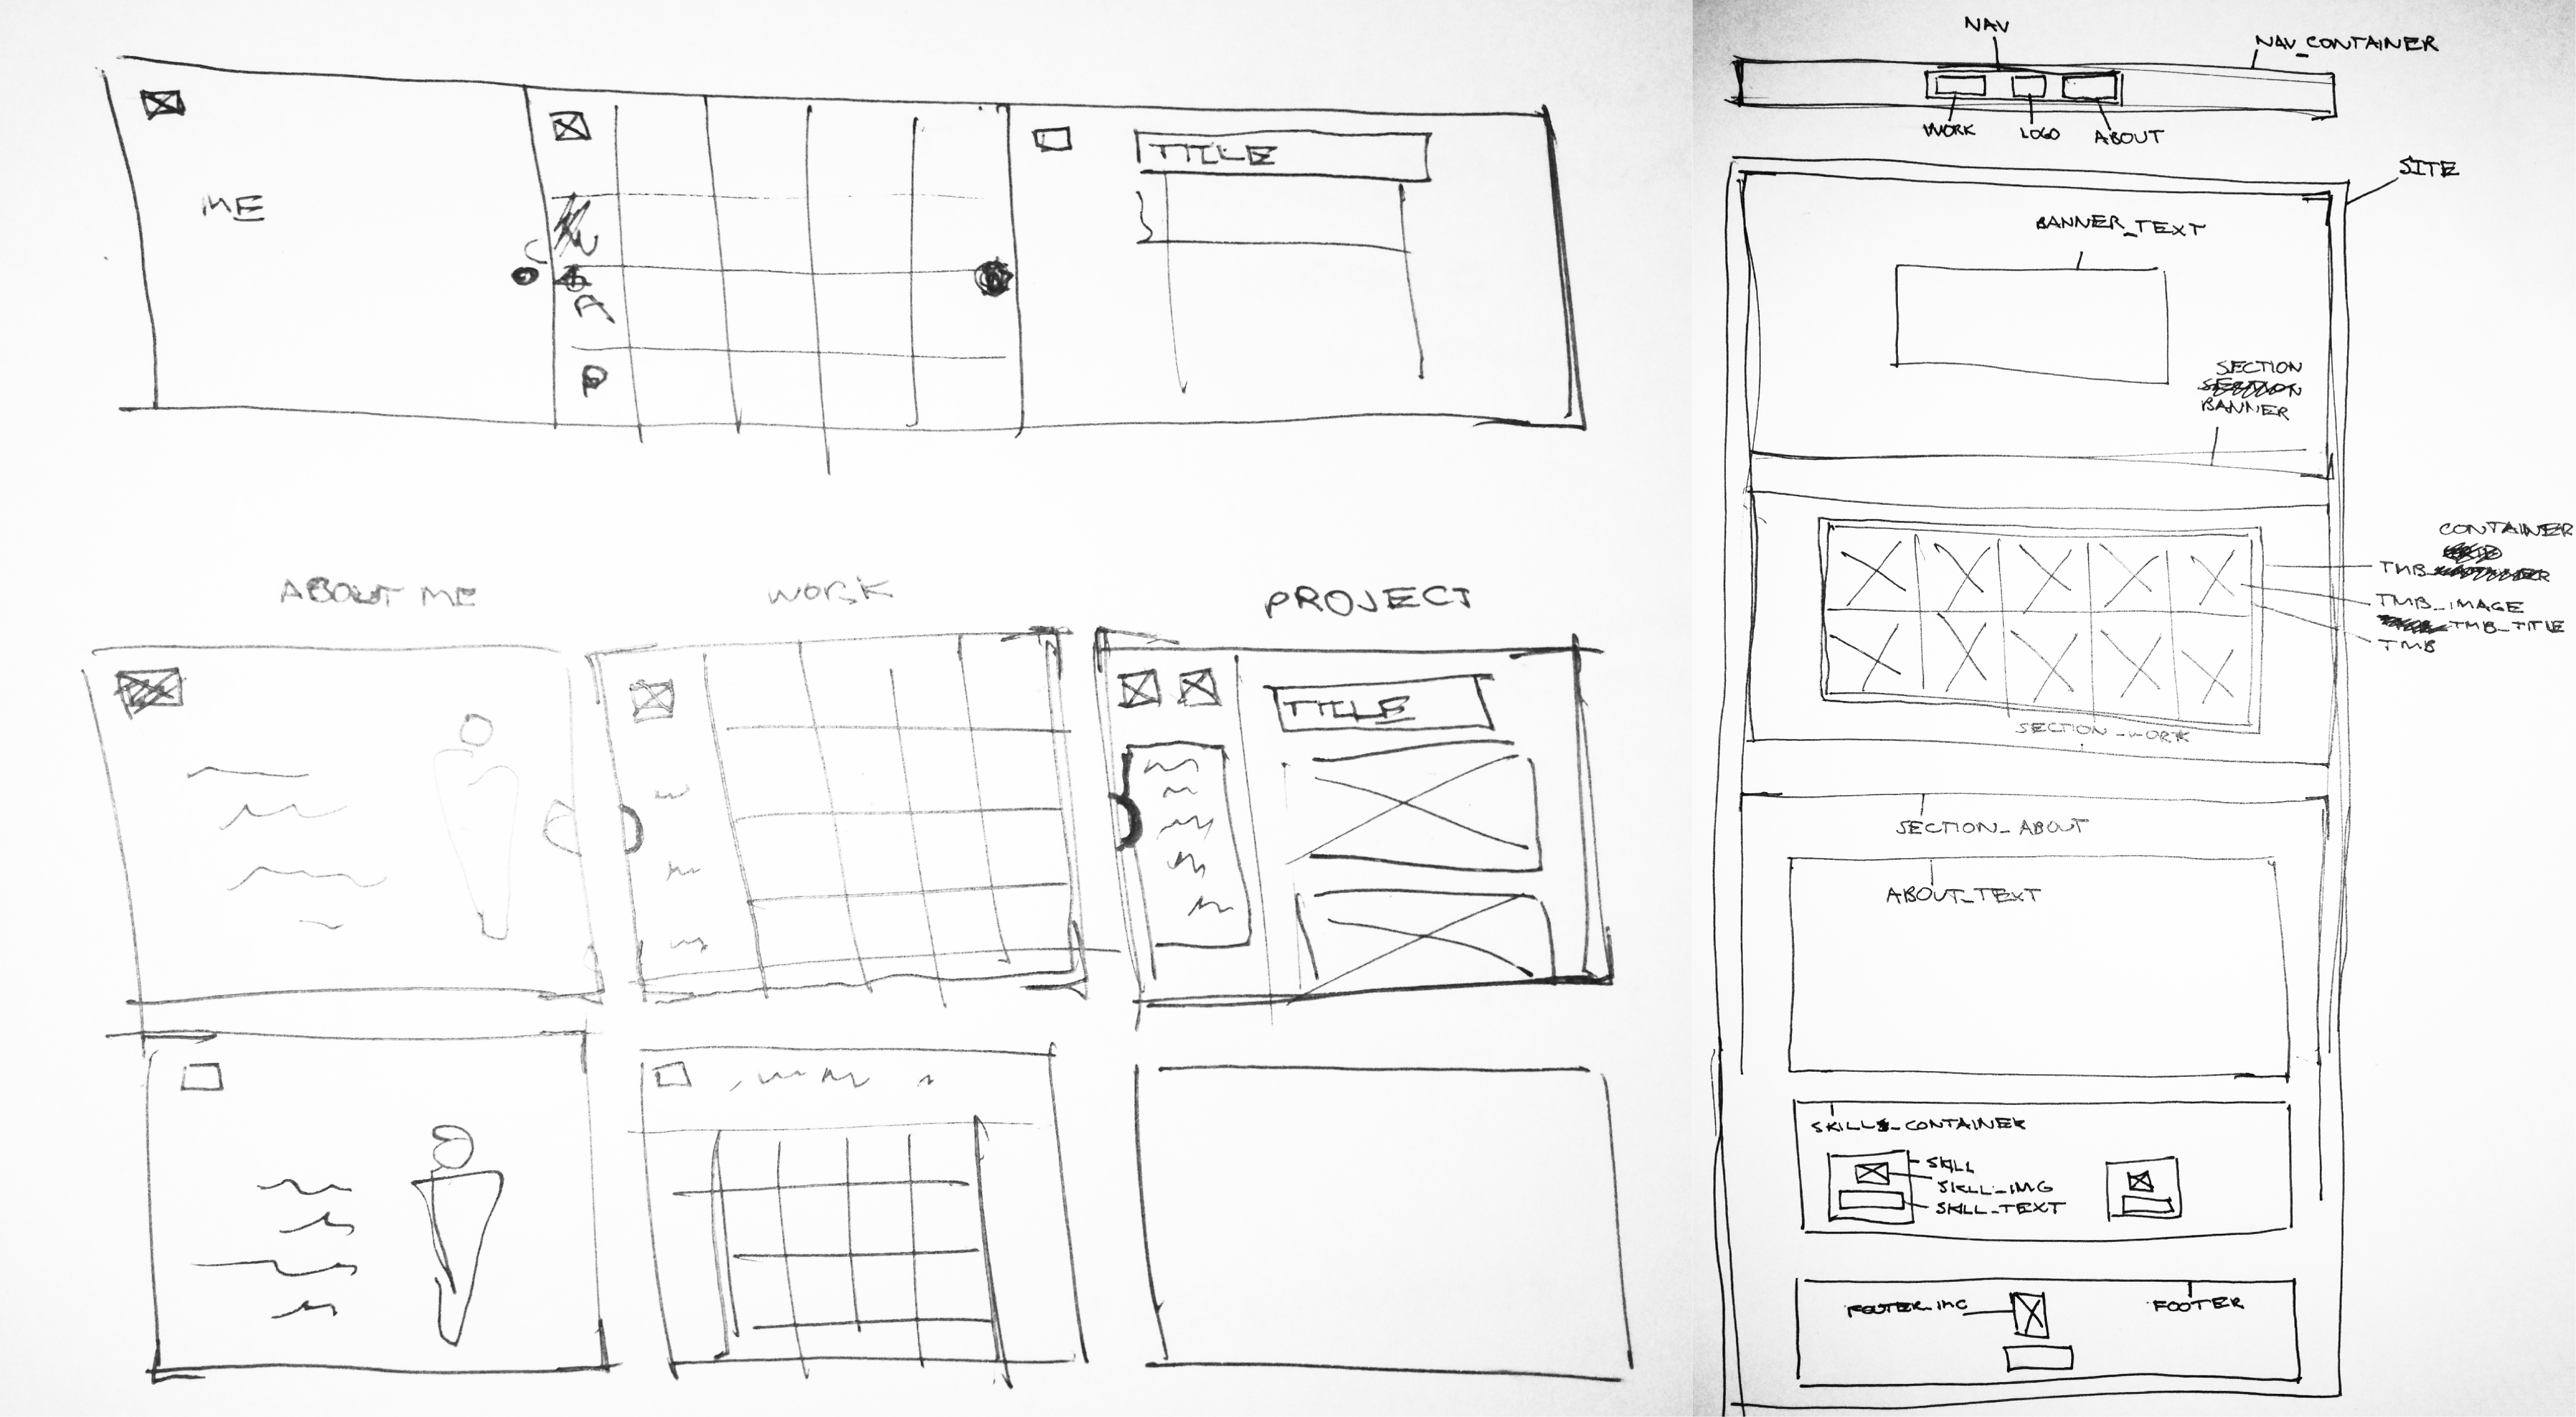 ME
TITLE
A
P
ABOUT ME
WORK
PROJECT
TITLE
NAV
NAV_CONTAINER
WORK
LOGO
ABOUT
SITE
BANNER_TEXT
SECTION
BANNER
CONTAINER
TMB
TMB_IMAGE
TMB_TITLE
TMB
SECTION_WORK
SECTION_ABOUT
ABOUT_TEXT
SKILLS_CONTAINER
SKILL
SKILL_IMG
SKILL_TEXT
FOOTER_IMG
FOOTER